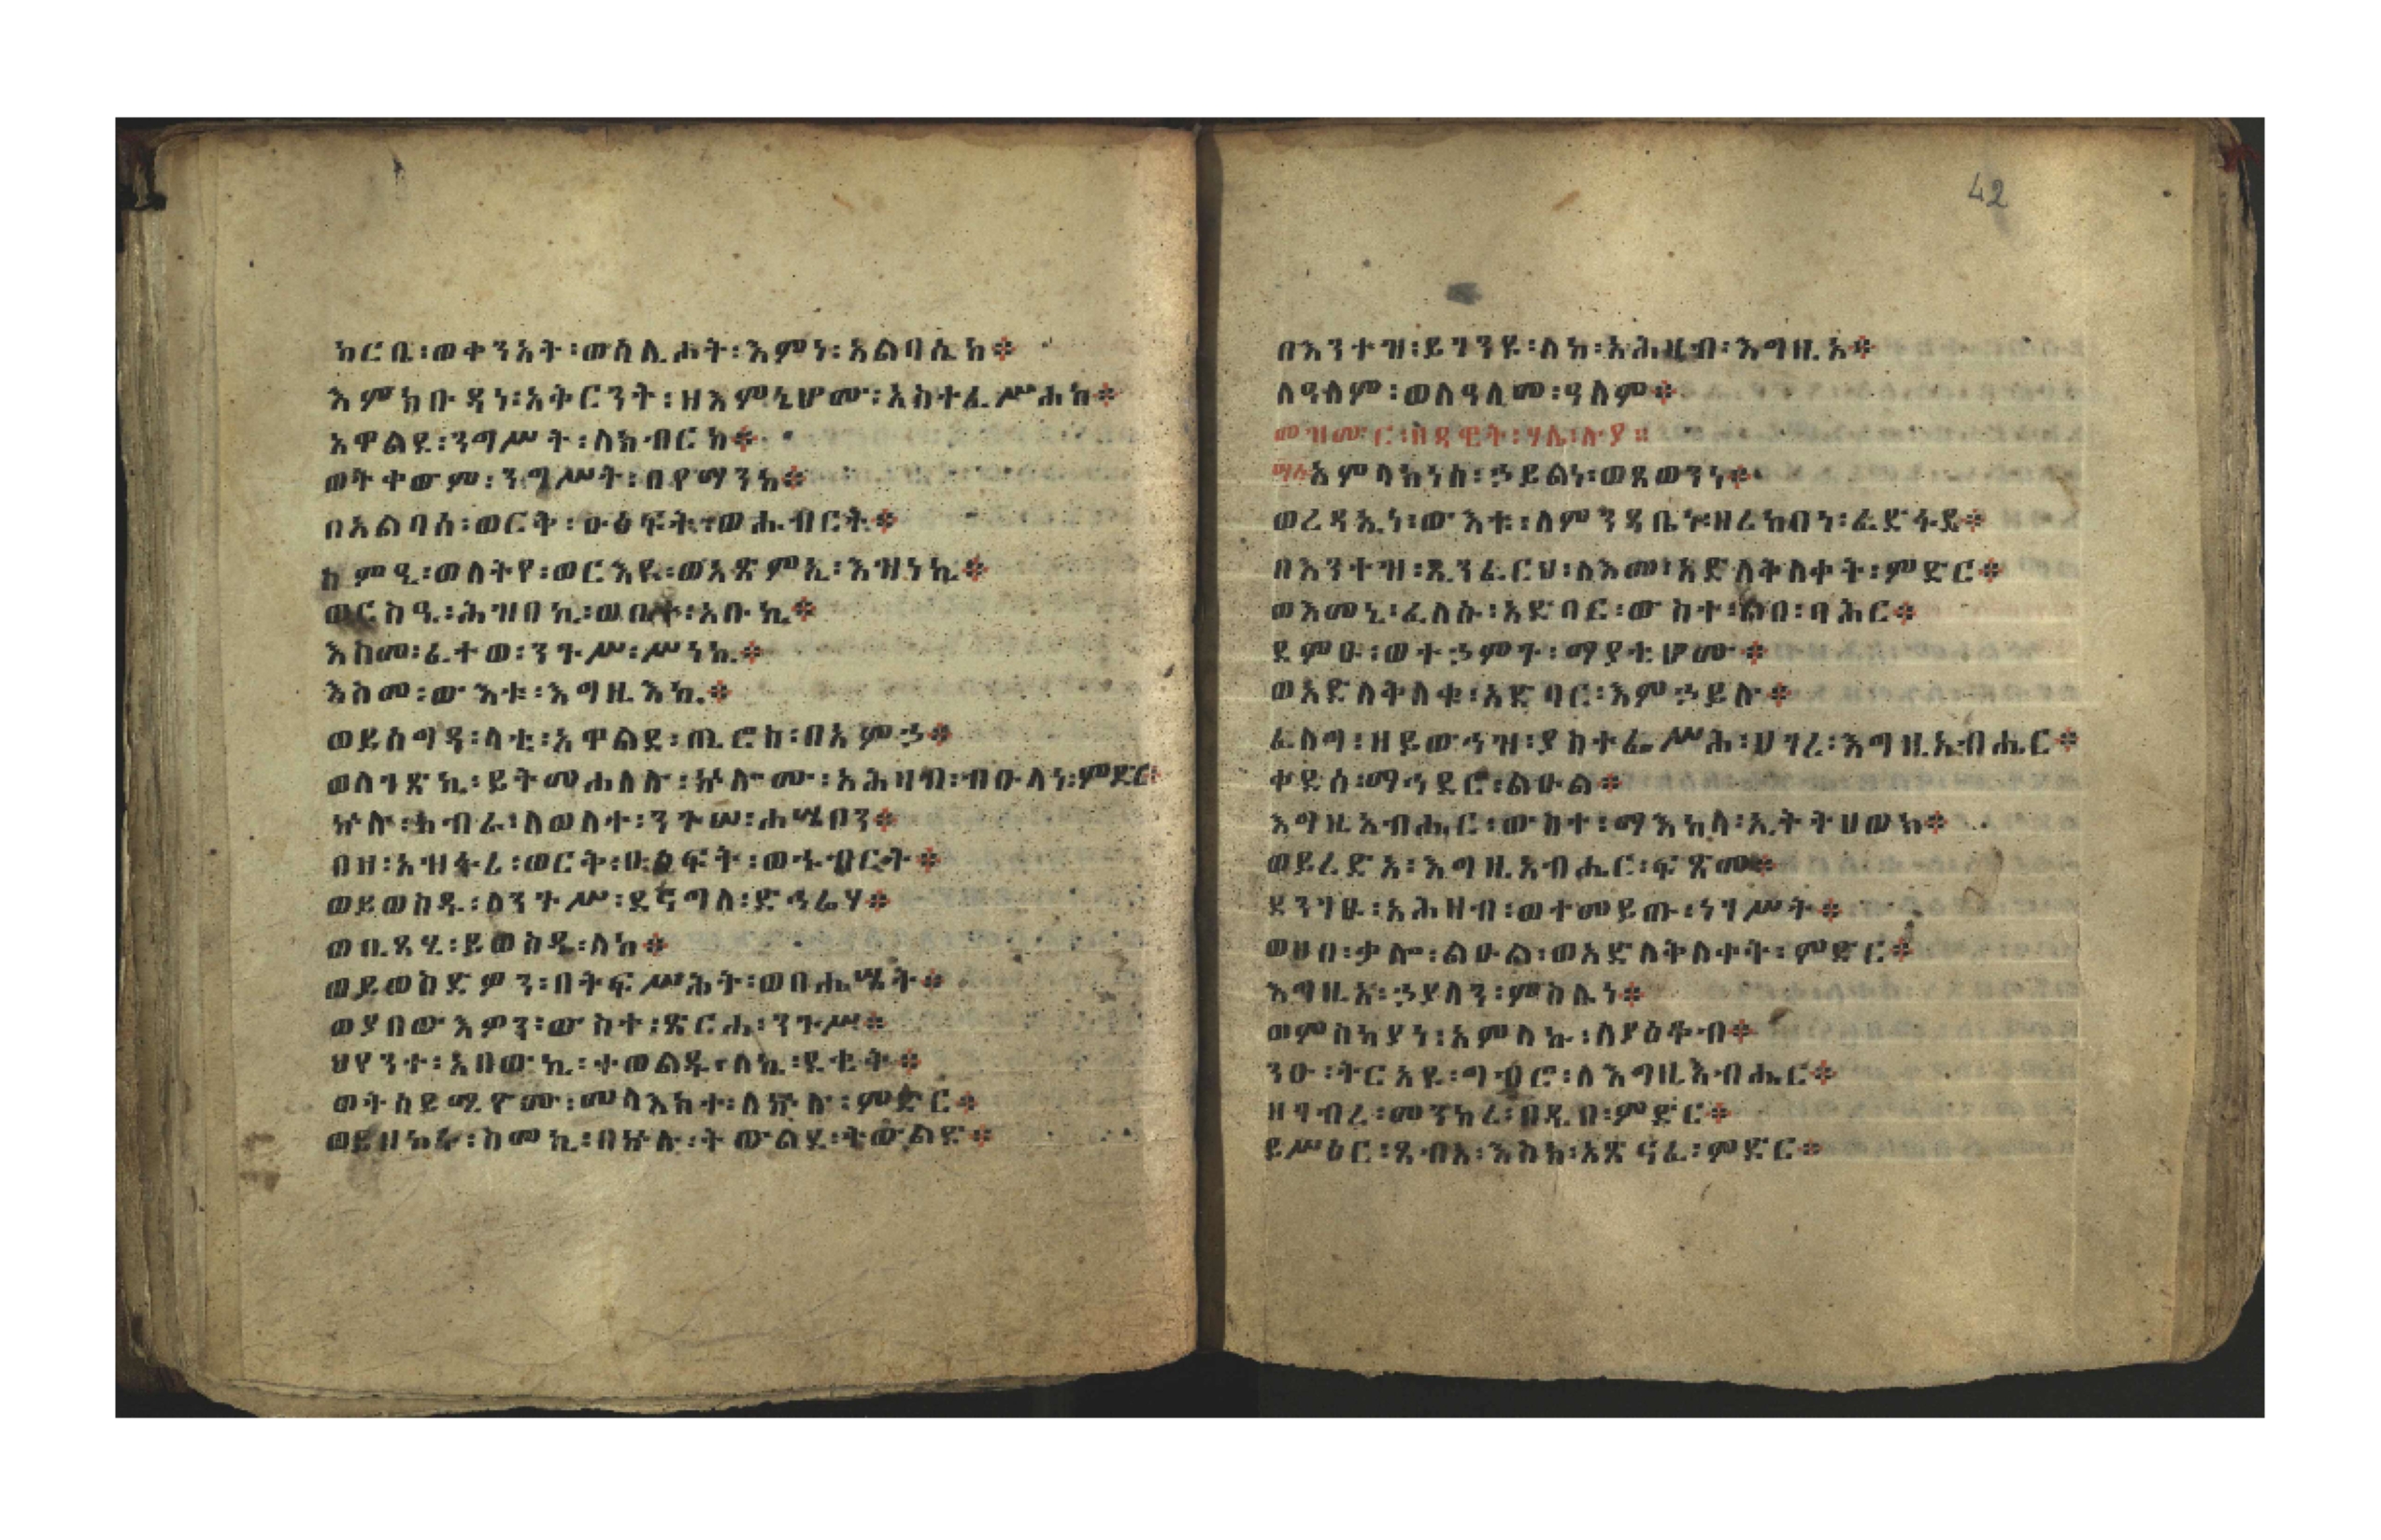 ከርቤ፡ወቀንአት፡ወሰሊሖት፡እምነ፡አልባሲከ፨
እምክቡዳነ፡አቅርንት፡ዘእምኔሆሙ፡አስተፈሥሐከ፨
አዋልደ፡ንግሥት፡ለክብርከ፨
ወትቀውም፡ንግሥት፡በየማንከ፨
በአልባሰ፡ወርቅ፡ዑፅፍት፡ወሑብርት፨
ስምዒ፡ወለትየ፡ወርእዪ፡ወአጽምኢ፡እዝነኪ፨
ወርስዒ፡ሕዝበኪ፡ወቤተ፡አቡኪ፨
እስመ፡ፈተወ፡ንጉሥ፡ሥነኪ፨
እስመ፡ውእቱ፡እግዚእኪ፨
ወይሰግዳ፡ላቲ፡አዋልደ፡ጢሮስ፡በአምኃ፨
ወለገጽኪ፡ይትመሐለሉ፡ኵሎሙ፡አሕዛብ፡ብዑላነ፡ምድር፨
ኵሉ፡ክብራ፡ለወለተ፡ንጉሠ፡ሐሴቦን፨
በዘ፡አዝፋረ፡ወርቅ፡ዑፅፍት፡ወሑብርት፨
ወይወስዱ፡ለንጉሥ፡ደናግለ፡ድኅሬሃ፨
ወቢጻሂ፡ይወስዱ፡ለከ፨
ወይወስድዎን፡በትፍሥሕት፡ወበሐሤት፨
ወያበውእዎን፡ውስተ፡ጽርሐ፡ንጉሥ፨
ህየንተ፡አበውኪ፡ተወልዱ፡ለኪ፡ደቂቅ፨
ወትሰይሚዮሙ፡መላእክተ፡ለኵሉ፡ምድር፨
ወይዘክሩ፡ስመኪ፡በኵሉ፡ትውልደ፡ትውልድ፨
42
በእንተዝ፡ይገንዩ፡ለከ፡አሕዛብ፡እግዚአ፨
ለዓለም፡ወለዓለመ፡ዓለም፨
መዝሙር፡በዳዊት፡ሃሌ፡ሉያ።
አምላክነሰ፡ኃይልነ፡ወጸወንነ፨
ወረዳኢነ፡ውእቱ፡ለምንዳቤነ፡ዘረከበነ፡ፈድፋደ፨
በእንተዝ፡ኢንፈርህ፡ለእመ፡አድለቅለቀት፡ምድር፨
ወእመኒ፡ፈለሱ፡አድባር፡ውስተ፡ልበ፡ባሕር፨
ደምፁ፡ወተኃምጉ፡ማያቲሆሙ፨
ወአድለቅለቁ፡አድባር፡እምኃይሉ፨
ፈለግ፡ዘይውኅዝ፡ያስተፌሥሕ፡ሀገረ፡እግዚአብሔር፨
ቀደሰ፡ማኅደሮ፡ልዑል፨
እግዚአብሔር፡ውስተ፡ማእከላ፡ኢትትሀወክ፨
ወይረድኣ፡እግዚአብሔር፡ፍጽመ፨
ደንገፁ፡አሕዛብ፡ወተመይጡ፡ነገሥት፨
ወሀበ፡ቃሎ፡ልዑል፡ወአድለቅለቀት፡ምድር፨
እግዚአ፡ኃያላን፡ምስሌነ፨
ወምስካያነ፡አምላኩ፡ለያዕቆብ፨
ንዑ፡ትርአዩ፡ግብሮ፡ለእግዚአብሔር፨
ዘገብረ፡መንክረ፡በዲበ፡ምድር፨
ይሥዕር፡ጸብአ፡እስከ፡አጽናፈ፡ምድር፨